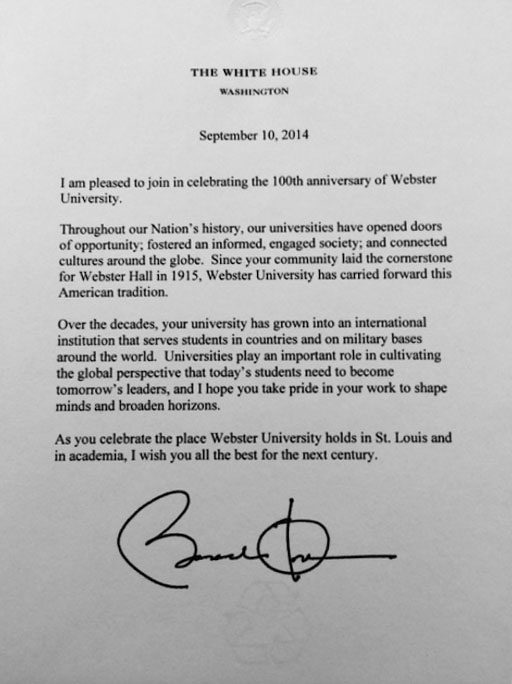 THE WHITE HOUSE
WASHINGTON
September 10, 2014
I am pleased to join in celebrating the 100th anniversary of Webster
University.
Throughout our Nation's history, our universities have opened doors
of opportunity; fostered an informed, engaged society; and connected
cultures around the globe.  Since your community laid the cornerstone
for Webster Hall in 1915, Webster University has carried forward this
American tradition.
Over the decades, your university has grown into an international
institution that serves students in countries and on military bases
around the world.  Universities play an important role in cultivating
the global perspective that today's students need to become
tomorrow's leaders, and I hope you take pride in your work to shape
minds and broaden horizons.
As you celebrate the place Webster University holds in St. Louis and
in academia, I wish you all the best for the next century.